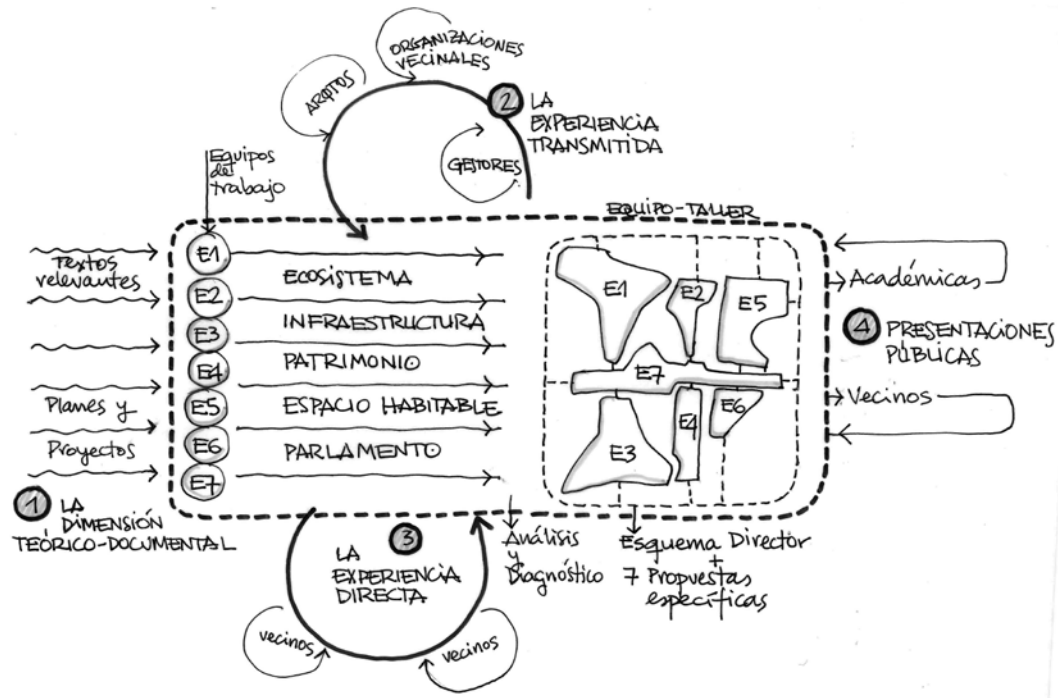 ORGANIZACIONES
VECINALES
ARQTOS
2 LA
EXPERIENCIA
TRANSMITIDA
GESTORES
Equipos
de
trabajo
EQUIPO-TALLER
Textos
relevantes
Planes y
Proyectos
1 LA
DIMENSIÓN
TEÓRICO-DOCUMENTAL
E1
E2
E3
E4
E5
E6
E7
ECOSISTEMA
INFRAESTRUCTURA
PATRIMONIO
ESPACIO HABITABLE
PARLAMENTO
E1
E2
E5
E7
E3
E4
E6
Académicas
4 PRESENTACIONES
PÚBLICAS
Vecinos
3
LA
EXPERIENCIA
DIRECTA
vecinos
vecinos
Análisis
y
Diagnóstico
Esquema Director
+
7 Propuestas
específicas